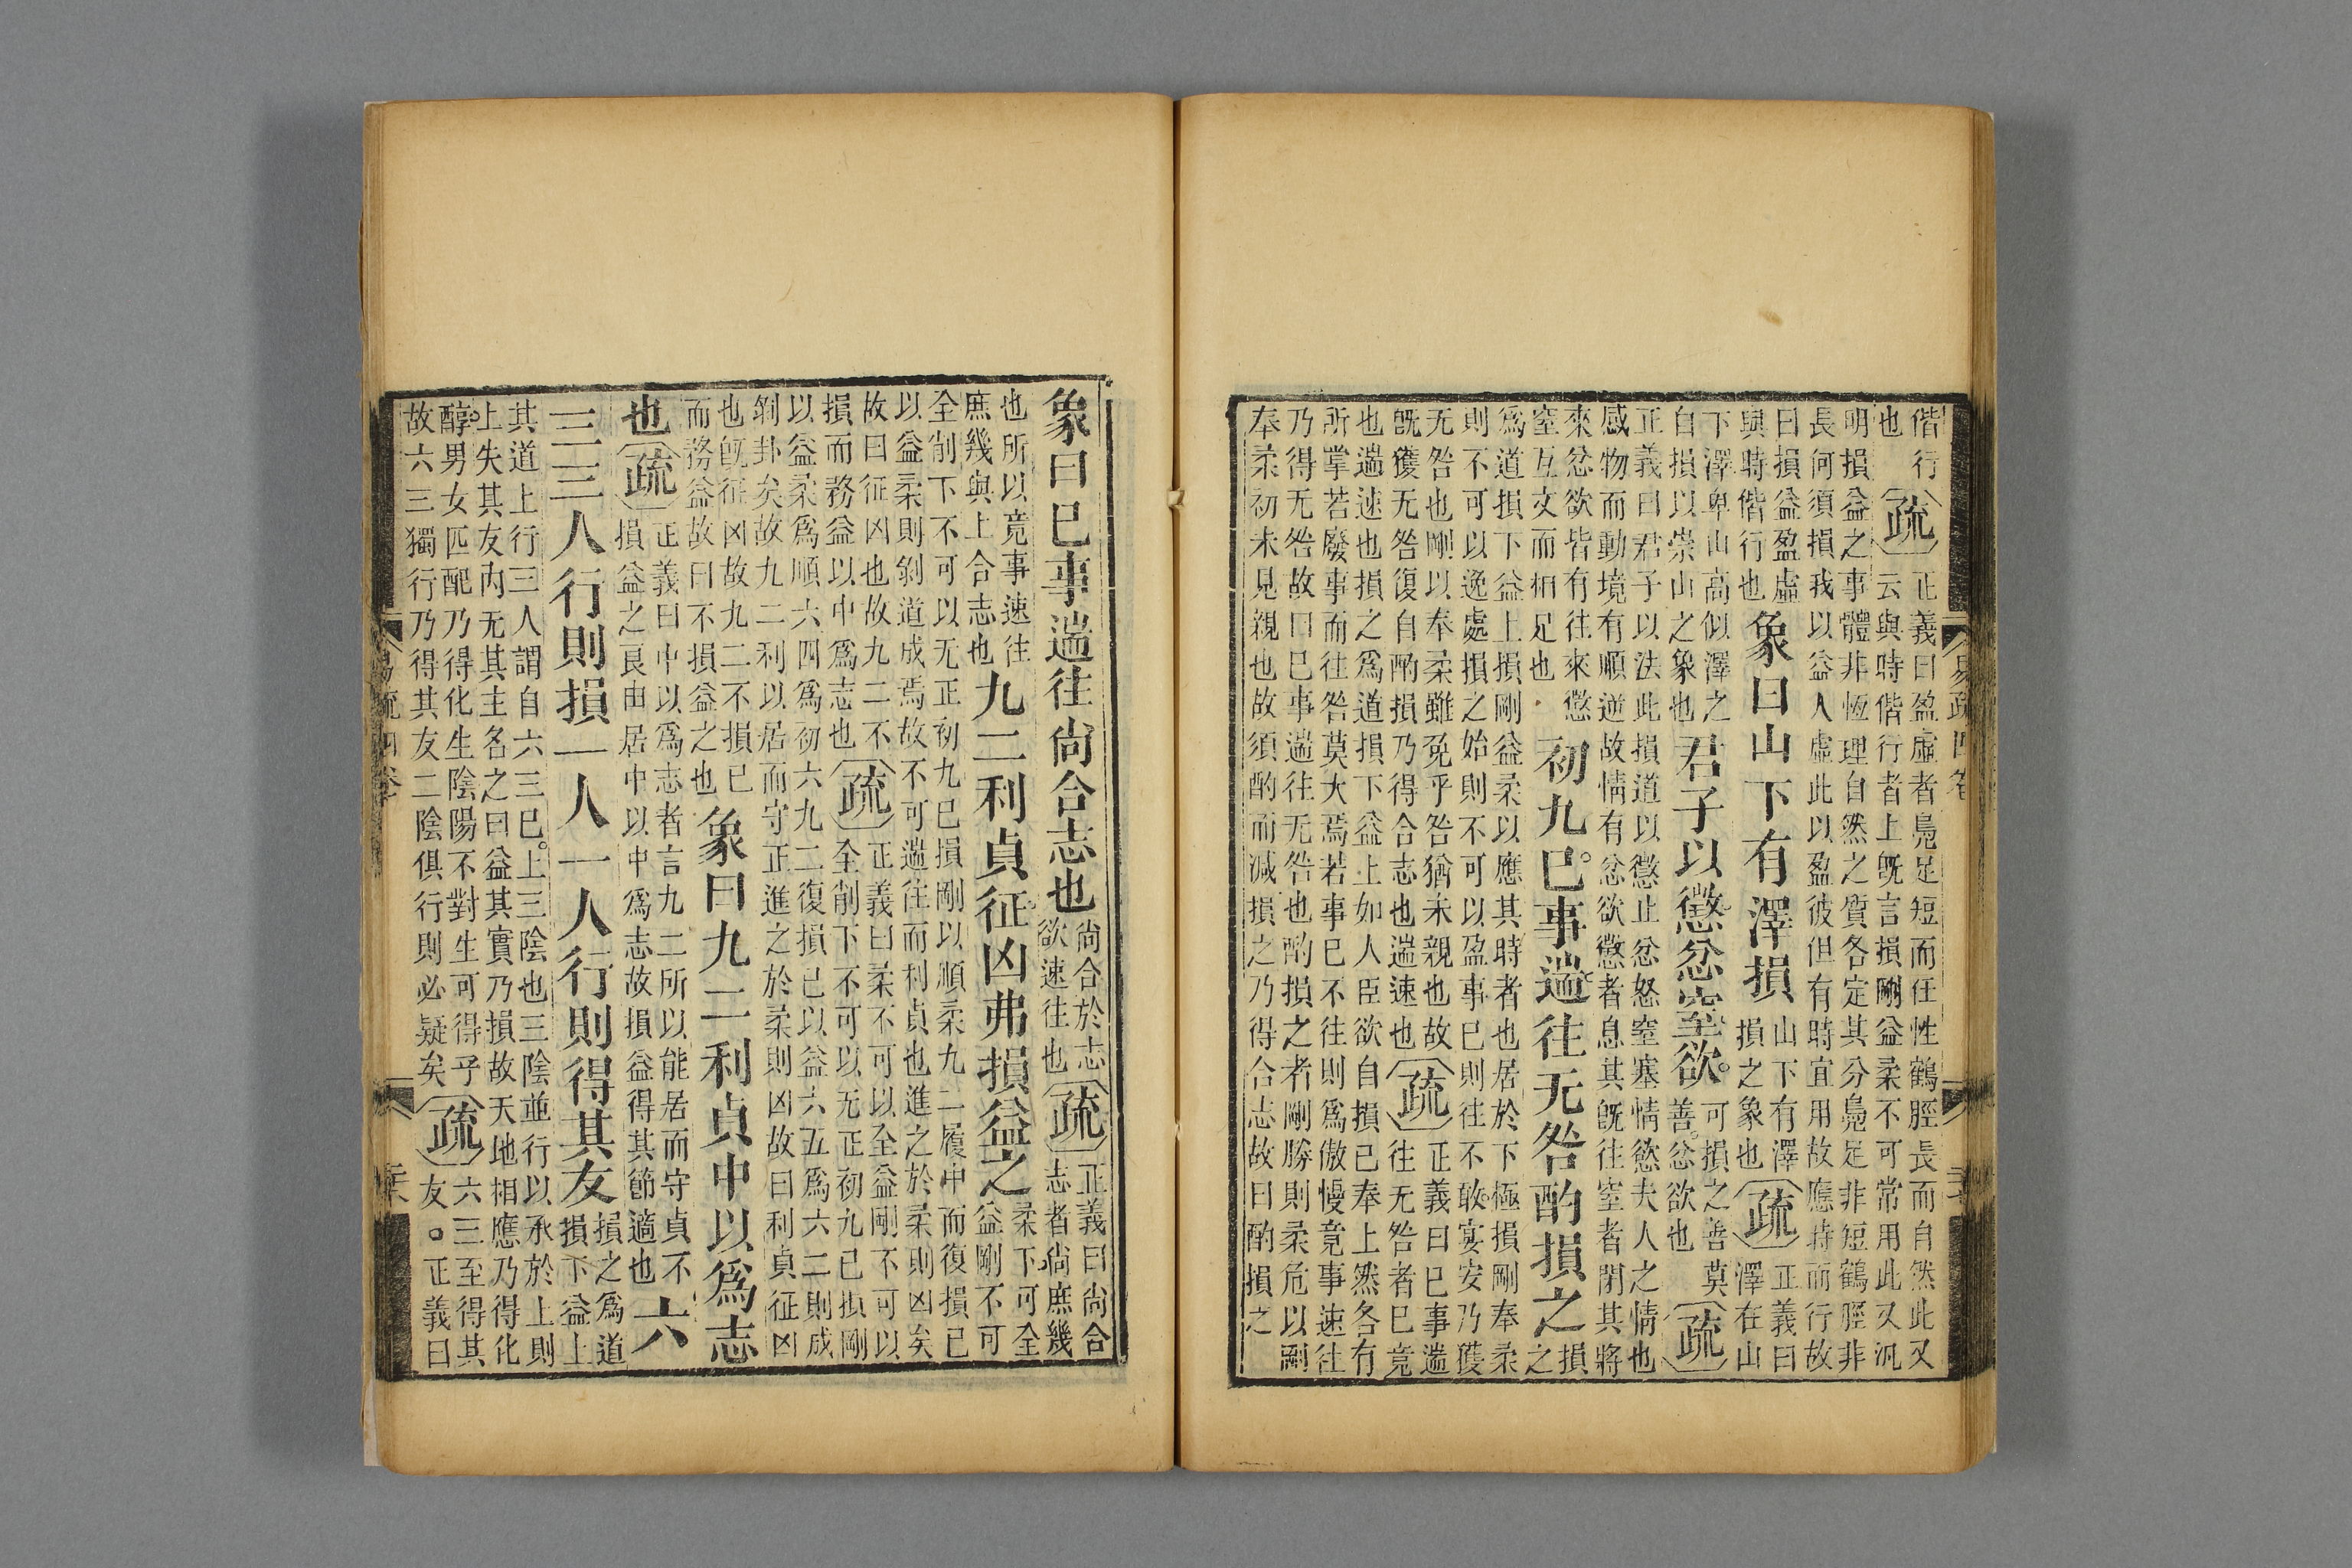 偕行
也
疏
正義曰盈虛者鳬足短而任性鶴脛長而自然此又
云與時偕行者上旣言損剛益柔不可常用此又汎
明損益之事體非恆理自然之質各定其分鳬足非短鶴脛非
長何須損我以益人虛此以盈彼但有時宜用故應時而行故
曰損益盈虛
與時偕行也
象曰山下有澤損
山下有澤
損之象也
疏
正義曰
澤在山
下澤卑山高似澤之
自損以崇山之象也
君子以懲忿窒欲
可損之善莫
善忿欲也
疏
正義曰君子以法此損道以懲止忿怒窒塞情慾夫人之情也
感物而動境有順逆故情有忿欲懲者息其旣往窒者閉其將
來忿欲皆有往來懲
窒互文而相足也
初九巳事遄往无咎酌損之
損
之
爲道損下益上損剛益柔以應其時者也居於下極損剛奉柔
則不可以逸處損之始則不可以盈事巳則往不敢宴安乃獲
无咎也剛以奉柔雖免乎咎猶未親也故
旣獲无咎復自酌損乃得合志也遄速也
疏
正義曰巳事遄
往无咎者巳竟
也遄速也損之爲道損下益上如人臣欲自損己奉上然各有
所掌若廢事而往咎莫大焉若事巳不往則爲傲慢竟事速往
乃得无咎故曰巳事遄往无咎也酌損之者剛勝則柔危以剛
奉柔初未見親也故須酌而減損之乃得合志故曰酌損之
易疏四卷
象曰巳事遄往尚合志也
尚合於志
欲速往也
疏
正義曰尚合
志者尚庶幾
也所以竟事速往
庶幾與上合志也
九二利貞征凶弗損益之
柔下可全
益剛不可
全削下不可以无正初九巳損剛以順柔九二履中而復損已
以益柔則剝道成焉故不可遄往而利貞也進之於柔則凶矣
故曰征凶也故九二不
損而務益以中爲志也
疏
正義曰柔不可以全益剛不可以
全削下不可以无正初九已損剛
以益柔爲順六四爲初六九二復損已以益六五爲六二則成
剝卦矣故九二利以居而守正進之於柔則凶故曰利貞征凶
也旣征凶故九二不損已
而務益故曰不損益之也
象曰九二利貞中以爲志
也
疏
正義曰中以爲志者言九二所以能居而守貞不
損益之良由居中以中爲志故損益得其節適也
六
三三人行則損一人一人行則得其友
損之爲道
損下益上
其道上行三人謂自六三已上三陰也三陰並行以承於上則
上失其友內无其主名之曰益其實乃損故天地相應乃得化
醇男女匹配乃得化生陰陽不對生可得乎
故六三獨行乃得其友二陰俱行則必疑矣
疏
六三至得其
友○正義曰
易疏四卷